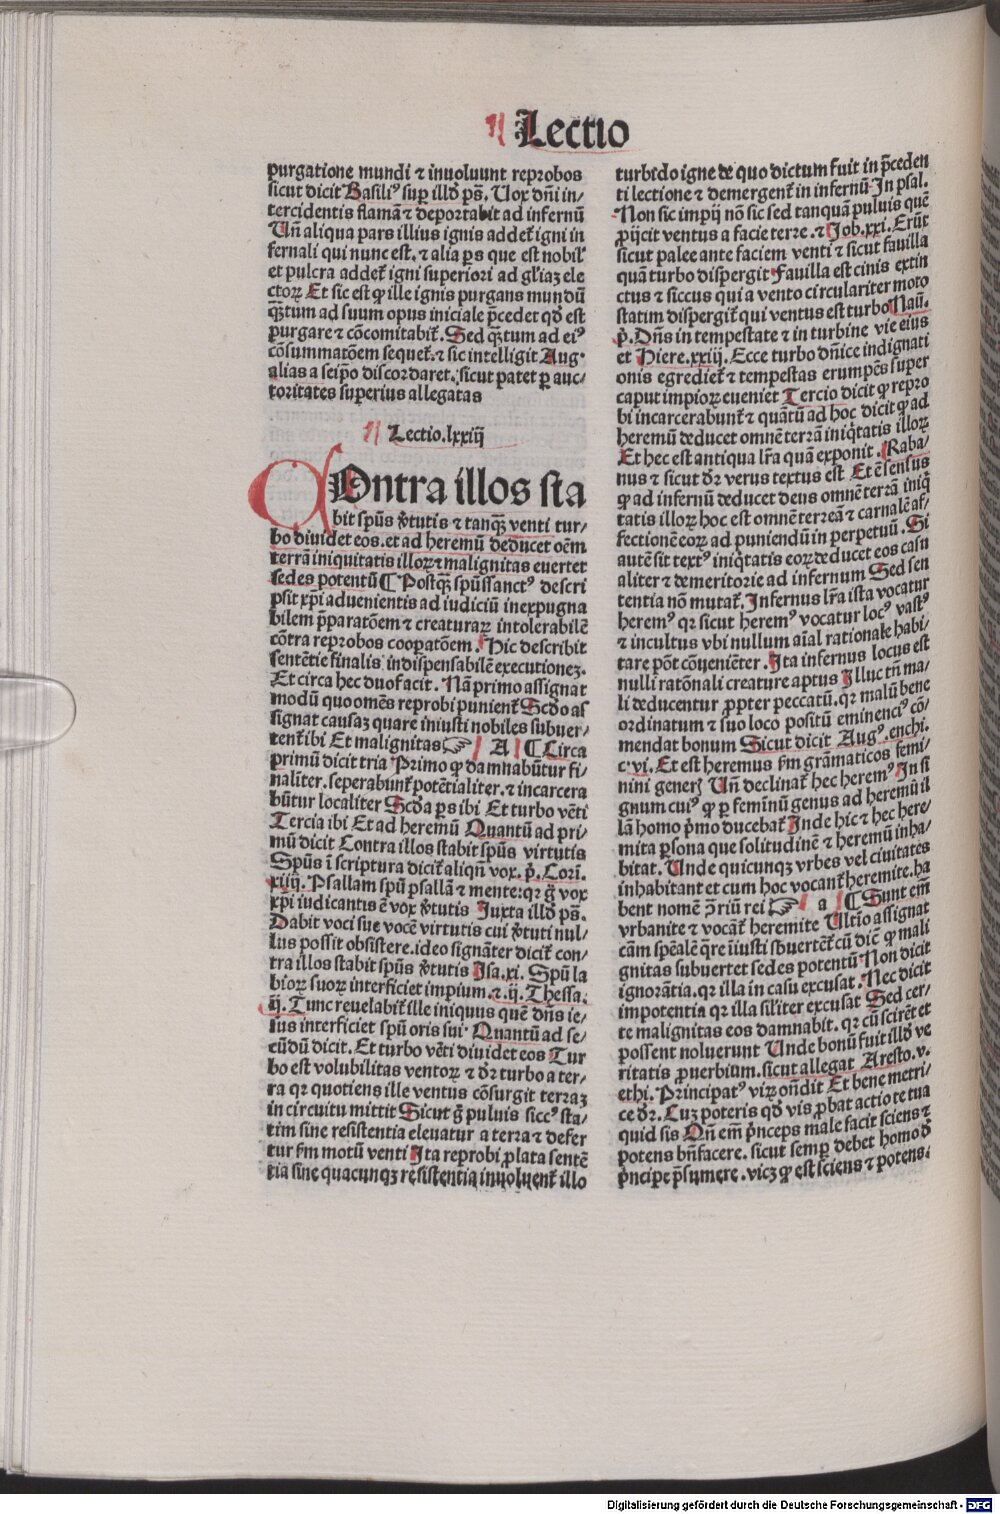 Lectio
purgatione mundi ⁊ inuoluunt reprobos
sicut dicit Basiliꝰ suꝑ illđ pš. Uox dñi in/
tercidentis flamã ⁊ deportabit ad infernũ
Uñ aliqua pars illius ignis addet̃ igni in
fernali qui nunc est. ⁊ alia ꝑs que est nobil'
et pulcra addet̃ igni superiori ad gl'iaꝫ ele
ctoꝝ Et sic est ꝙ ille ignis purgans mundũ
q̃ꝫtum ad suum opus iniciale p̃cedet qđ est
ꝑurgare ⁊ cõcomitabit̃. Sed q̃ꝫtum ad eiꝰ
cõsummatõem sequet̃. ⁊ sic intelligit Aug.
alias a seip̃o discordaret. sicut patet ꝑ auc/
toritates superius allegatas
Lectio.lxxiiij
COntra illos sta
bit spũs v̓tutis ⁊ tanq̃ꝫ venti tur/
bo diuidet eos. et ad heremũ deducet oẽm
terrã iniquitatis illoꝝ ⁊ malignitas euertet
sedes potentũ ¶ Postq̃ꝫ spũssanctꝰ descri
psit xp̃i aduenientis ad iudiciũ inexpugna
bilem p̃paratõem ⁊ creaturaꝝ intolerabilẽ
cõtra reprobos coopatõem. Hic describit
sentẽtie finalis indispensabilẽ executioneꝫ.
Et circa hec duo facit. Nã primo assignat
modũ quo omẽs reprobi punient̃ Scđo as
signat causaꝫ quare iniusti nobiles subuer/
tent̃ ibi Et malignitas ☞ A ¶ Circa
primũ dicit tria Primo ꝙ damnabũtur fi/
naliter. seperabunt̃ potẽtialiter. ⁊ incarcera
bũtur localiter Scđa ꝑs ibi Et turbo vẽti
Tercia ibi Et ad heremũ Quantũ ad pri/
mũ dicit Contra illos stabit spũs virtutis
Spũs ĩ scriptura dicit̃ aliqñ vox. p̓. Corĩ.
xiiij. Psallam spũ psallã ⁊ mente: qr g̃ vox
xp̃i iudicantis ẽ vox v̓tutis Juxta illđ pš.
Dabit voci sue vocẽ virtutis cui v̓tuti nul/
lus possit obsistere. ideo signãter dicit̃ con/
tra illos stabit spũs v̓tutis Jsa.xi. Spũ la
bioꝝ suoꝝ interficiet impium. ⁊. ij. Thessa.
ij. Tunc reuelabit̃ ille iniquus quẽ dñs ie/
sus interficiet spũ oris sui. Quantũ ad se/
cũdũ dicit. Et turbo vẽti diuidet eos Tur
bo est volubilitas ventoꝝ ⁊ đr turbo a ter/
ra qr quotiens ille ventus cõsurgit terraꝫ
in circuitu mittit Sicut g̃ puluis siccꝰ sta/
tim sine resistentia eleuatur a terra ⁊ defer
tur ẜm motũ venti Jta reprobi ꝓlata sentẽ
tia sine quacunqꝫ resistentia inuoluent̃ illo
turbido igne de quo dictum fuit in p̃ceden
ti lectione ⁊ demergent̃ in infernũ Jn psal.
Non sic impij nõ sic sed tanquã puluis quẽ
ꝓijcit ventus a facie terre. ⁊ Job.xxi. Erũt
sicut palee ante faciem venti ⁊ sicut fauilla
quã turbo dispergit Fauilla est cinis extin
ctus ⁊ siccus qui a vento circulariter moto
statim dispergit̃ qui ventus est turbo Naũ.
p̓. Dñs in tempestate ⁊ in turbine vie eius
et Hiere.xxiij. Ecce turbo dñice indignati
onis egrediet̃ ⁊ tempestas erumpẽs super
caput impioꝝ eueniet Tercio dicit ꝙ repro
bi incarcerabunt̃ ⁊ quãtũ ad hoc dicit ꝙ ad
heremũ deducet omnẽ terrã iniq̃tatis illoꝝ
Et hec est antiqua l'ra quã exponit. Raba/
nus ⁊ sicut đr verus textus est Et ẽ sensus
ꝙ ad infernũ deducet deus omnẽ terrã iniq̓
tatis illoꝝ hoc est omnẽ terreã ⁊ carnalẽ af/
fectionẽ eoꝝ ad puniendũ in perpetuũ. Si
autẽ sit textꝰ iniq̃tatis eoꝝ deducet eos casu
aliter ⁊ demeritorie ad infernum Sed sen
tentia nõ mutat̃. Jnfernus l'ra ista vocatur
heremꝰ qr sicut heremꝰ vocatur locꝰ vastꝰ
⁊ incultus vbi nullum aĩal rationale habi/
tare põt cõueniẽter. Jta infernus locus est
nulli ratõnali creature aptus Jlluc tñ ma/
li deducentur ꝓpter peccatũ. qr malũ bene
ordinatum ⁊ suo loco positũ eminenciꝰ cõ/
mendat bonum Sicut dicit Augꝰ. enchi.
c.vi. Et est heremus ẜm grãmaticos femi/
nini generꝭ Uñ declinat̃ hec heremꝰ Jn si
gnum cuiꝰ ꝙ ꝑ femĩnũ genus ad heremũ il
lã homo p̓mo ducebat̃ Jnde hic ⁊ hec here/
mita ꝑsona que solitudinẽ ⁊ heremũ inha/
bitat. Unde quicunqꝫ vrbes vel ciuitates
inhabitant et cum hoc vocant̃ heremite. ha
bent nomẽ ꝯ̃riũ rei ☞ a ¶ Sunt em̃
vrbanite ⁊ vocãt̃ heremite Ultĩo assignat
cãm spẽalẽ q̃re ĩiusti s̃buertẽt̃ cũ dic̃ ꝙ mali
gnitas subuertet sedes potentũ Non dicit
ignorãtia. qr illa in casu excusat. Nec dicit
impotentia qr illa sil'iter excusat Sed cer/
te malignitas eos damnabit. qr cũ scirẽt et
possent noluerunt Unde bonũ fuit illđ ve
ritatis ꝓuerbium. sicut allegat Aresto. v.
ethi. Principatꝰ viꝝ oñdit Et bene metri/
ce đr. Cuꝫ poteris qđ vis ꝓbat actio te tua
quid sis Qñ em̃ p̓nceps male facit sciens ⁊
potens bñfacere. sicut semꝑ debet homo đ
p̓ncipe p̃sumere. vicꝫ ꝙ est sciens ⁊ potens.
Digitalisierung gefördert durch die Deutsche Forschungsgemeinschaft - DFG